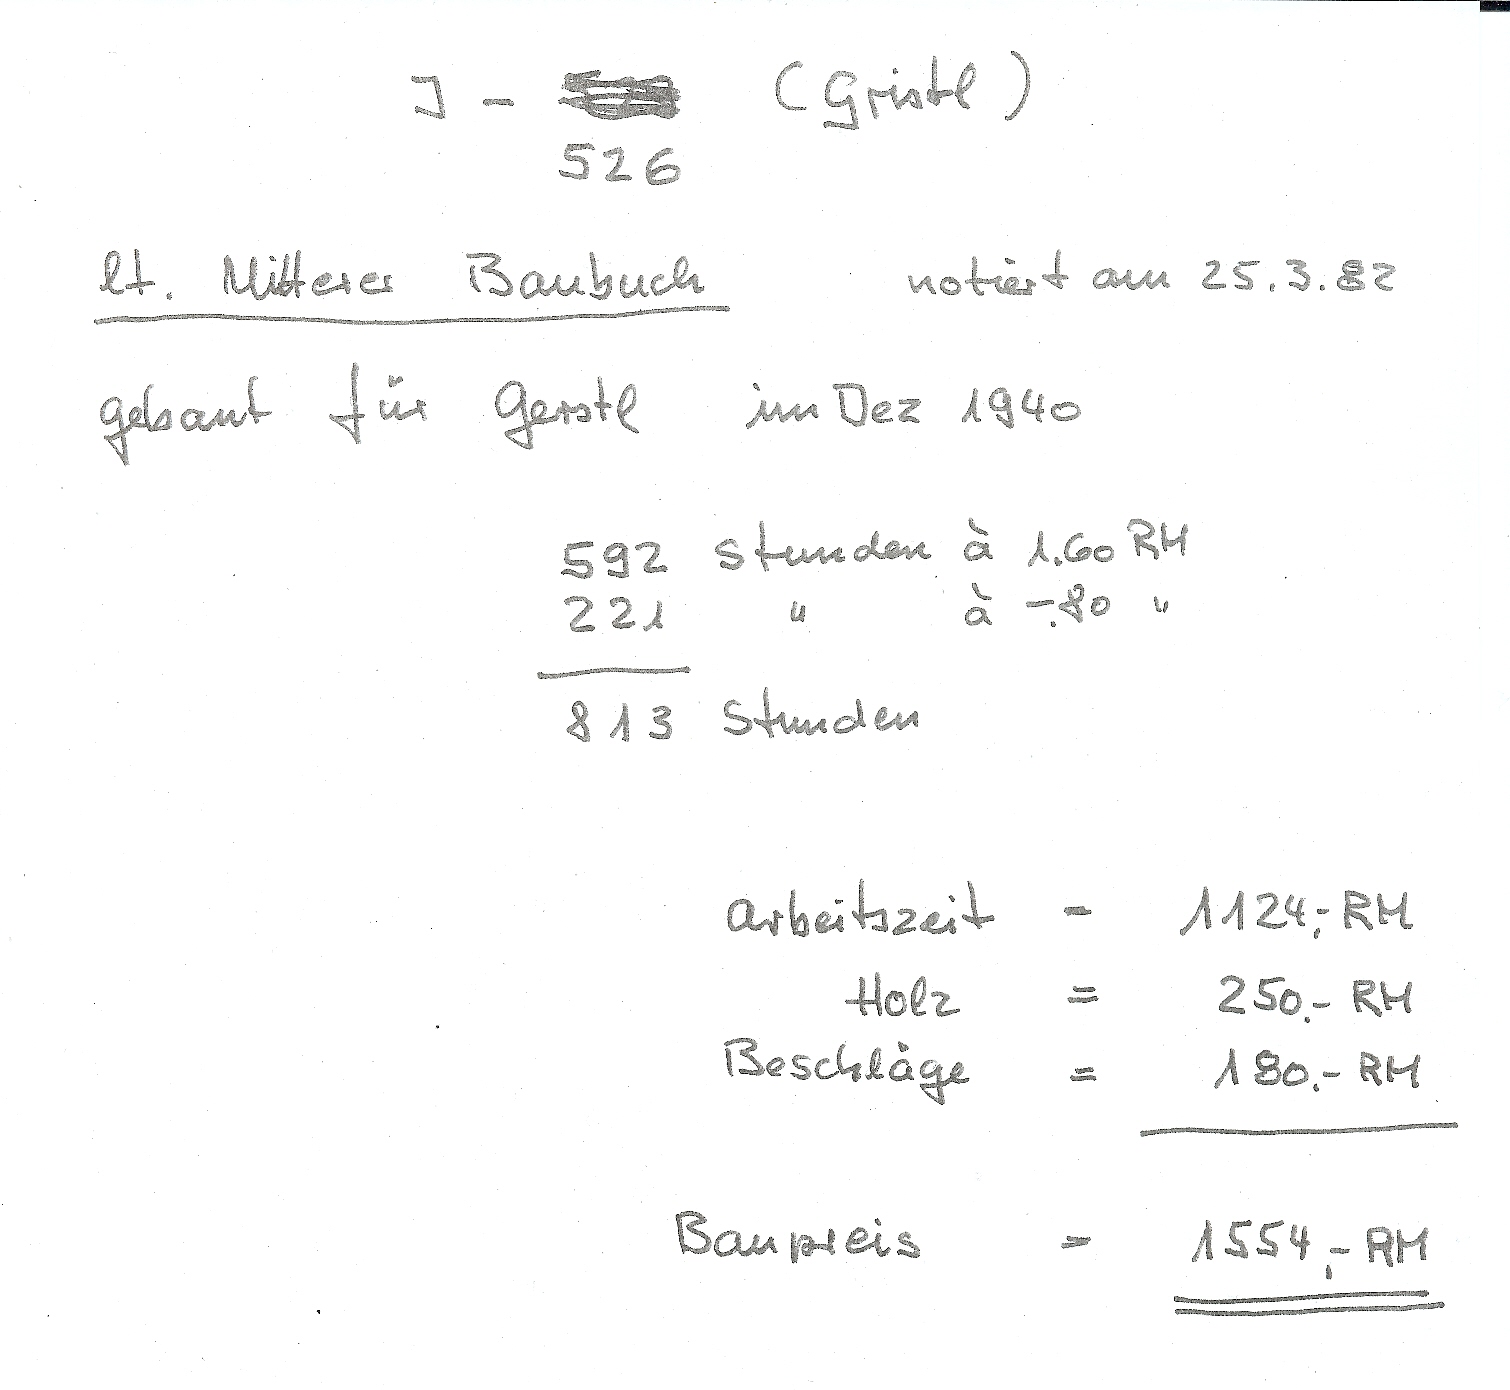 J - (Gristl)
526
lt. Mitterer Baubuch notiert am 25.3.82
gebaut für Gerstl im Dez 1940
592 Stunden à 1.60 RM
221 " à -.80 "
813 Stunden
Arbeitszeit = 1124,- RM
Holz = 250.- RM
Beschläge = 180.- RM
Baupreis = 1554,- RM